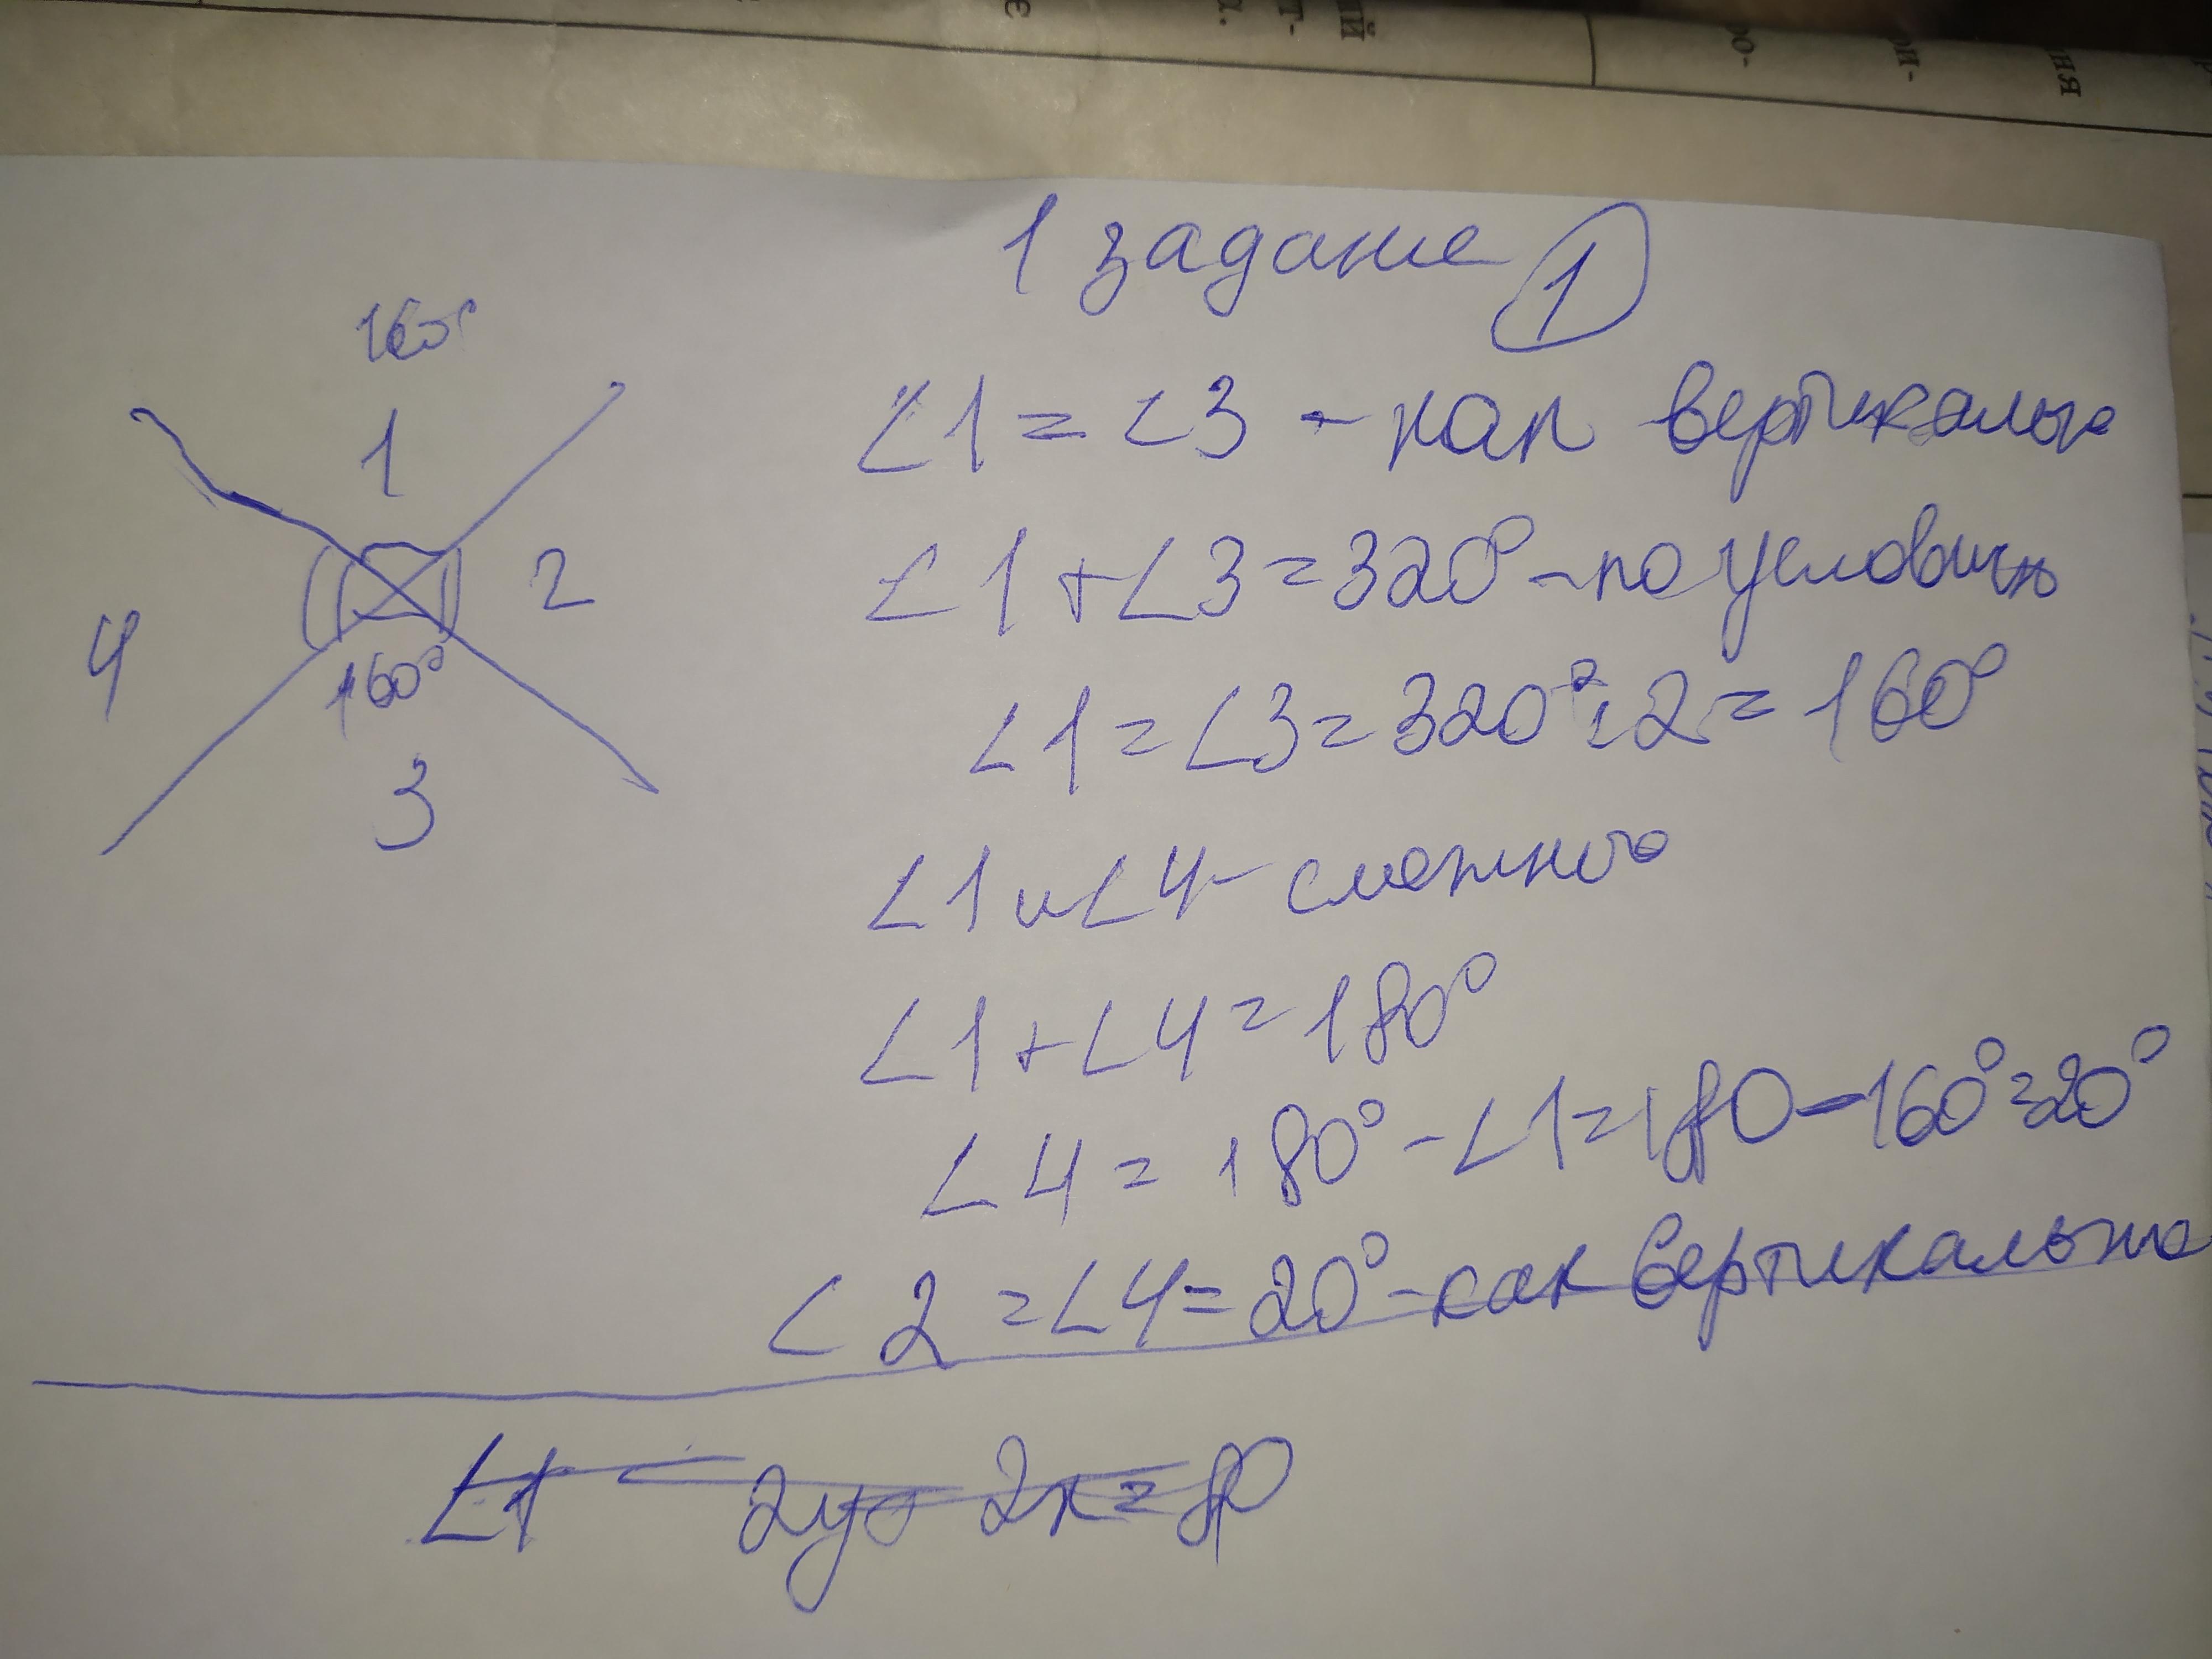 1 задание 1
160°
1
2
4
160°
3
∠1 = ∠3 - как вертикальные
∠1 + ∠3 = 320° - по условию
∠1 = ∠3 = 320° : 2 = 160°
∠1 и ∠4 - смежные
∠1 + ∠4 = 180°
∠4 = 180° - ∠1 = 180 - 160° = 20°
∠2 = ∠4 = 20° - как вертикальные
∠1